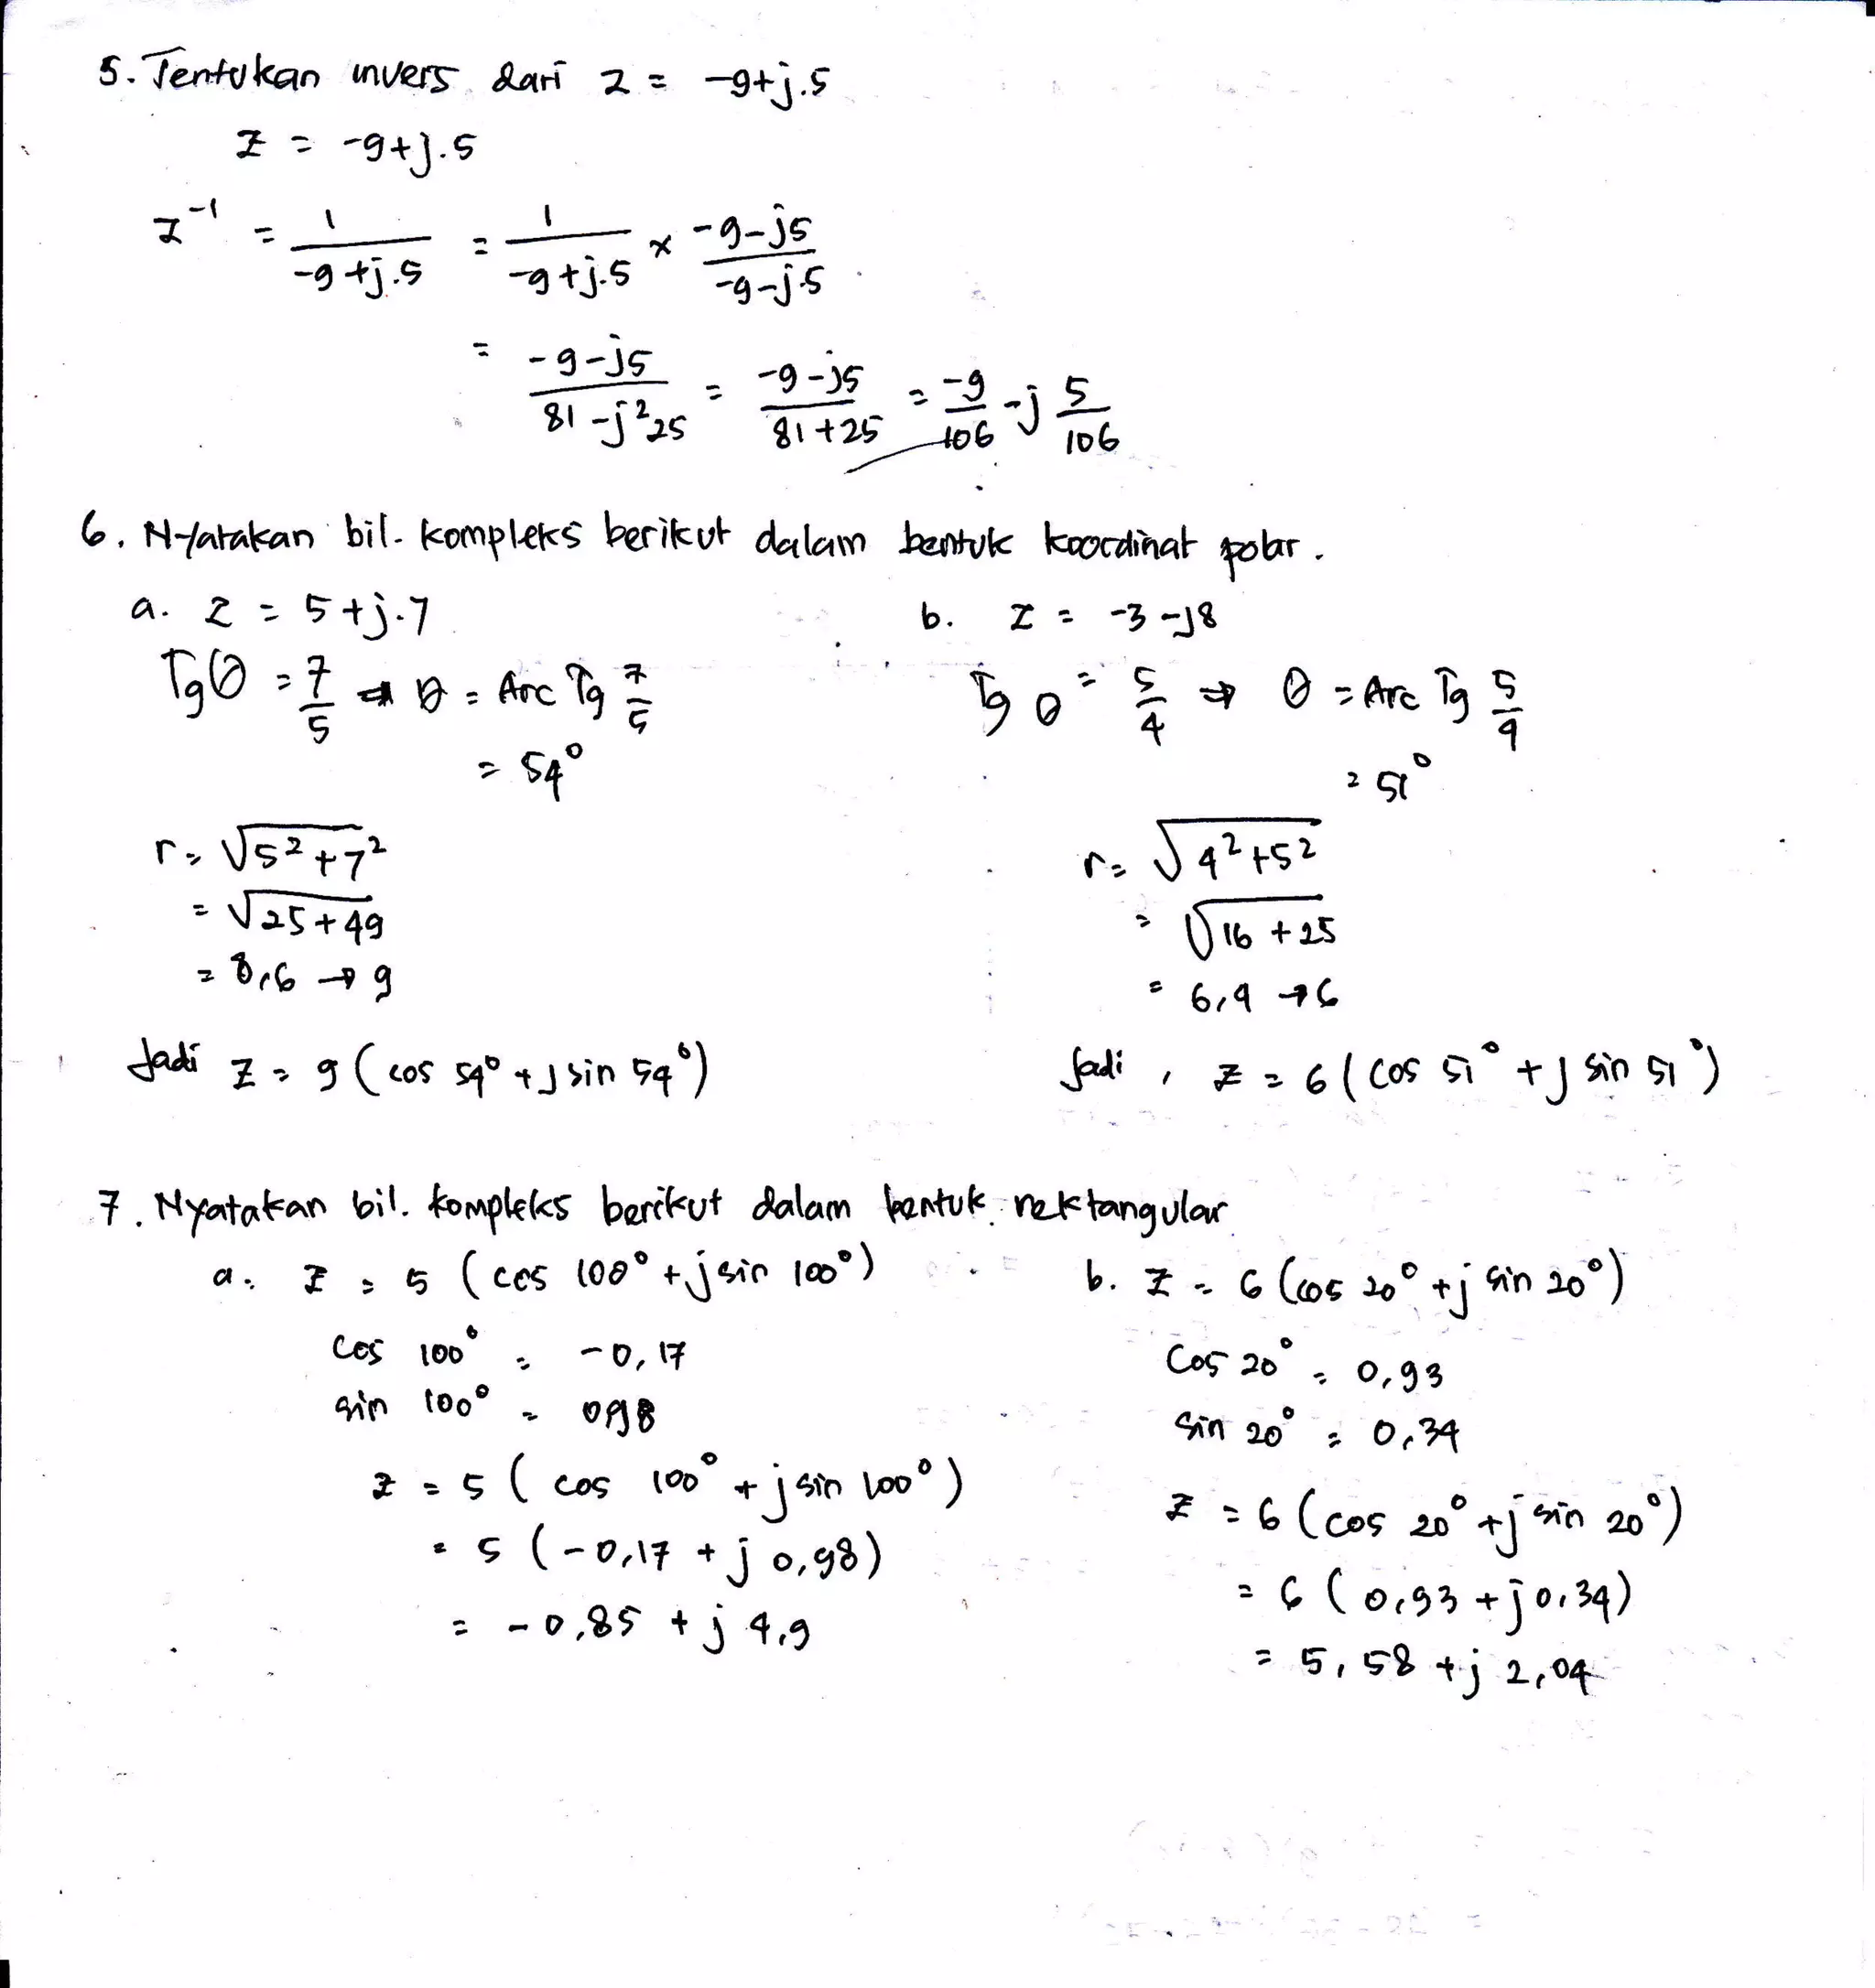 5. Tentukan invers dari z = -9+j.5
z = -9+j.5
z⁻¹ = 1/(-9+j.5) = 1/(-9+j.5) × (-9-j5)/(-9-j.5)
= (-9-j5)/(81-j²25) = (-9-j5)/(81+25) = -9/106 -j 5/106
6. Nyatakan bil. kompleks berikut dalam bentuk koordinat polar.
a. z = 5+j.7
Tg θ = 7/5 ⇒ θ = Arc Tg 7/5
= 54°
r = √5²+7²
= √25+49
= 8,6 → 9
Jadi z = 9 (cos 54° + j sin 54°)
b. z = -3-j8
Tg θ = 5/4 ⇒ θ = Arc Tg 5/4
= 51°
r = √4²+5²
= √16+25
= 6,4 → 6
Jadi, z = 6 (cos 51° + j sin 51°)
7. Nyatakan bil. kompleks berikut dalam bentuk rektangular
a. z = 5 (cos 100° + j sin 100°)
cos 100° = -0,17
sin 100° = 0,98
z = 5 (cos 100° + j sin 100°)
= 5 (-0,17 + j 0,98)
= -0,85 + j 4,9
b. z = 6 (cos 20° + j sin 20°)
cos 20° = 0,93
sin 20° = 0,34
z = 6 (cos 20° + j sin 20°)
= 6 (0,93 + j 0,34)
= 5,58 + j 2,04